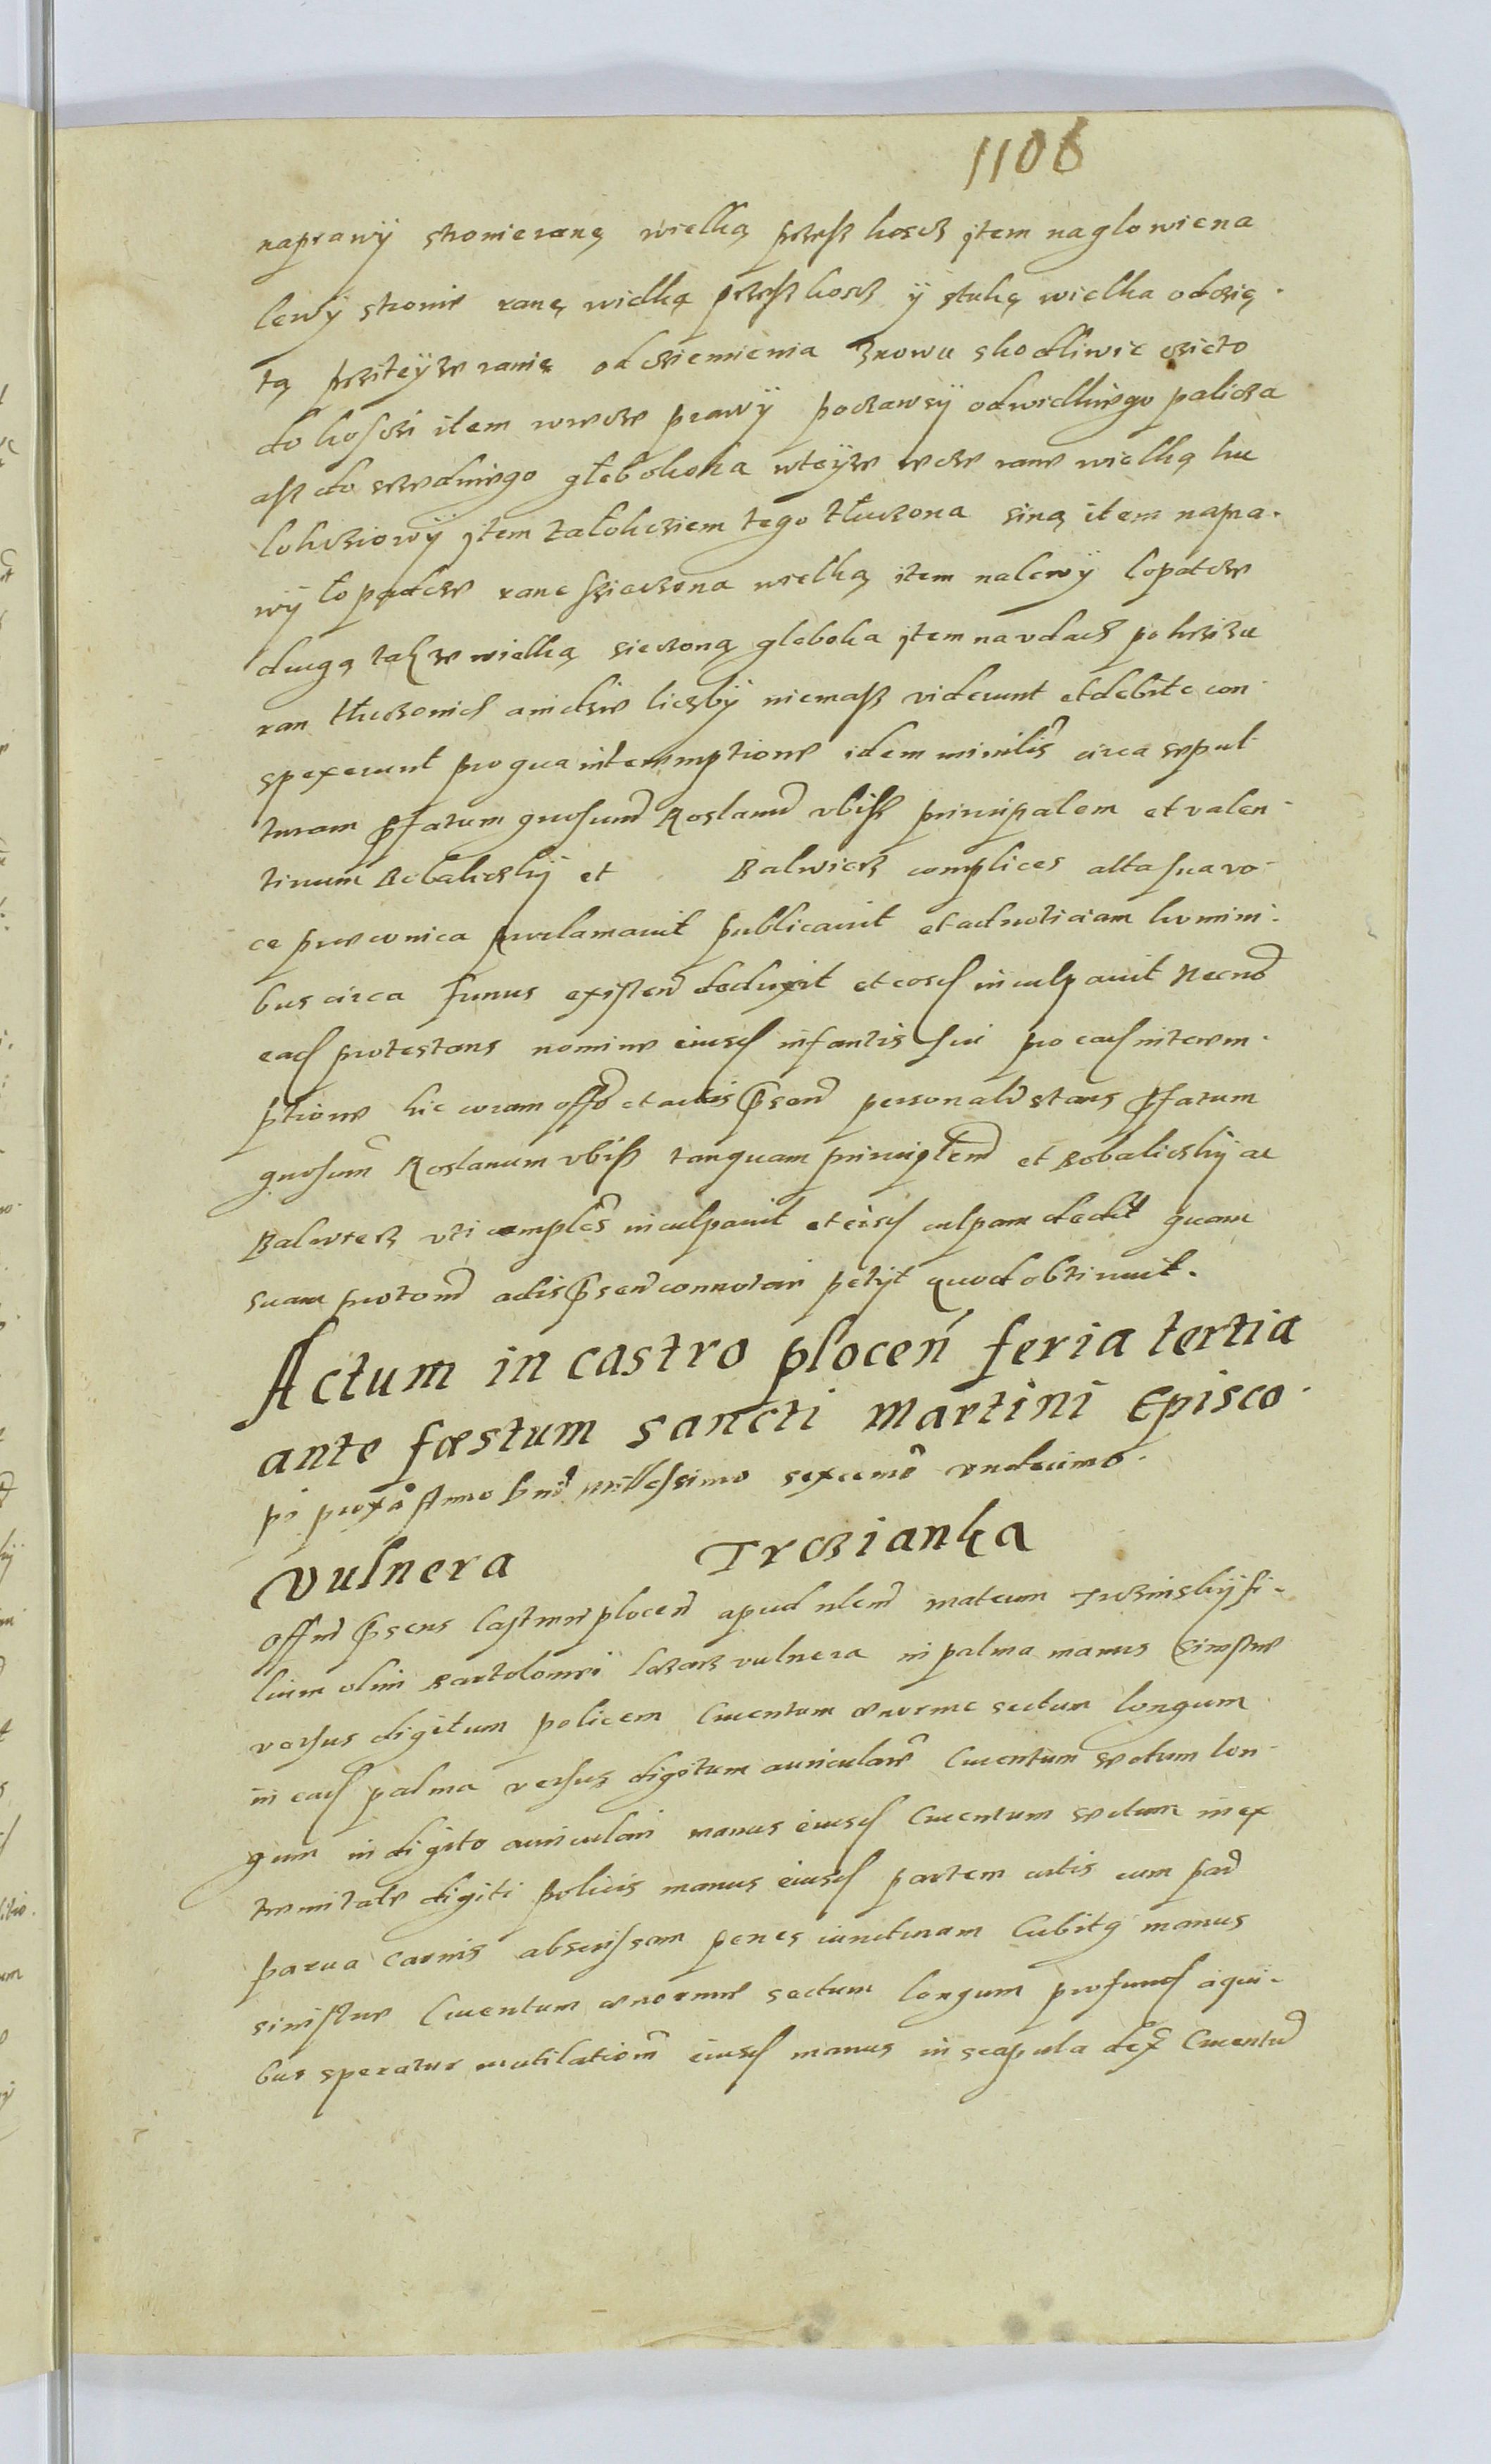 1106
naprawÿ stronie ranę wielką przesz koscz item na glowie na
lewÿ stronie ranę wielką przesz koscz ÿ stukę wielka odczię-
tą przi teÿze ranie od ciemienia znowu skodliwie czięto
do kosczi item w rece prawÿ poczawsÿ od wielkiego palcza
asz do srzedniego głeboko na teÿze rece rane wielką ku
lokcziowÿ item za łokcziem tego tłuczona siną item na pra-
wÿ łopadcze rane sieczona wielką item na lewÿ lopatcze
drugą takze wielką sieczoną gleboka item na udach po krzizu
ran tłuczonich anidzie liczbÿ niemasz viderunt et debite con-
spexerunt pro qua interemptione idem ministr circa sepul-
turam pfatum gnosum Roslanum ubisz principalem et valen-
tinum Bobaliczkÿ et Balwierz complices alta sua vo-
ce preconica proclamavit publicavit et ad noticiam homini-
bus circa funus existen deduxit et eosd inculpavit Necno
ead protestans nomine eiusd infantis sui pro ead interem-
ptione hic coram offo et actis psen personalr stans pfatum
gnosum Roslanum ubisz tanquam principlem et Bobaliczkÿ ac
Balwierz uti complces inculpavit et eisd culpam dedit quam
suam proton actis psen connotari petiit quod obtinuit.
Actum in castro plocen feria tertia
ante fæstum sancti Martini Episco-
pi proxa Anno Dni millessimo sexcento undecimo.
Vulnera Trczianka
Offm psens Castrense plocen apud nlem Mateum Trczinskÿ fi-
lium olim Bartolomei vulnera in palma manus sinistre
versus digitum policem Cruentum enorme sectum longum
in ead palma versus digitum auricularem Cruentum sectum lon-
gum in digito auriculari manus eiusd Cruentum sectum in ex
tremitate digiti policis manus eiusd partem cutis cum par
parua carnis abscissam penes iuncturam Cubitq manus
sinistre Cruentum enorme sectum longum profund a qui-
bus speratur mutilationem eiusd manus in scapula dex Cruentu